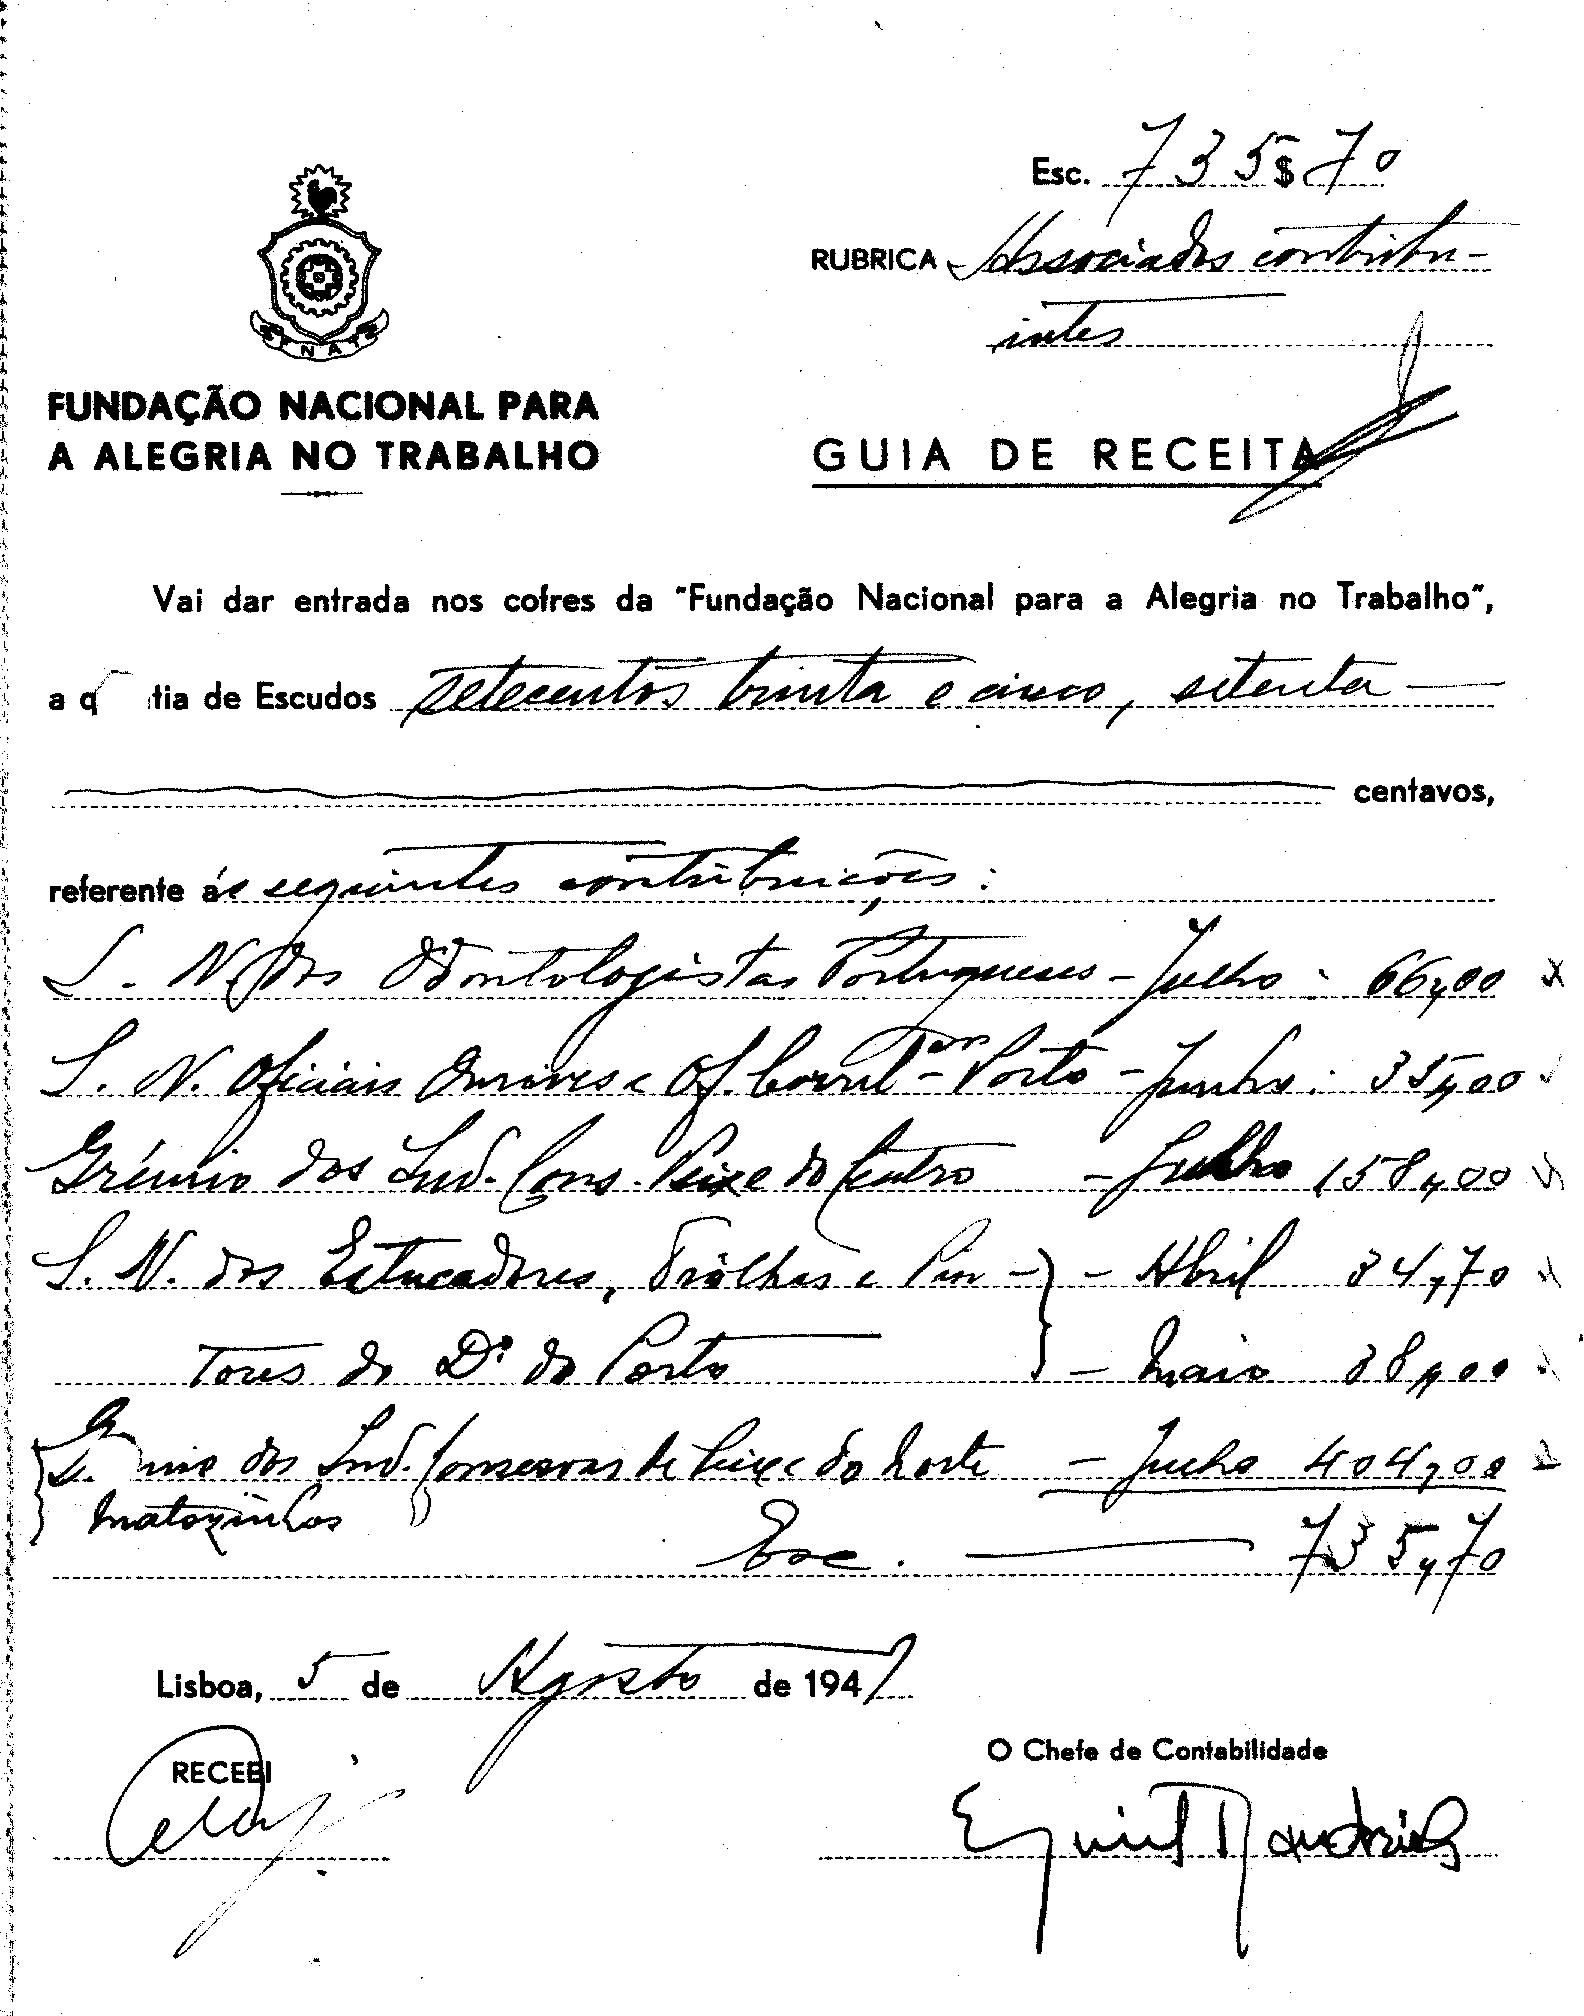 Esc. 735$70
RUBRICA Associados contribu-
intes
FNAT
FUNDAÇÃO NACIONAL PARA
A ALEGRIA NO TRABALHO
GUIA DE RECEITA
Vai dar entrada nos cofres da "Fundação Nacional para a Alegria no Trabalho",
a q tia de Escudos setecentos trinta e cinco, setenta
centavos,
referente ás seguintes contribuições:
S. N. dos Odontologistas Portugueses - Julho - 66,00 x
S. N. Oficiais Ourives e Of. Correl - Porto - Junho: 35,00
Grémio dos Ind. Cons. Peixe do Centro - Julho 158,00
S. N. dos Estucadores, Trolhas e Pin- - Abril 34,70
tores do D.º do Porto - Maio 38,00
mio dos Ind. Conservas de Peixe do Norte - Julho 404,00
Matozinhos
Esc. 735,70
Lisboa, 5 de Agosto de 194
RECEBI
O Chefe de Contabilidade